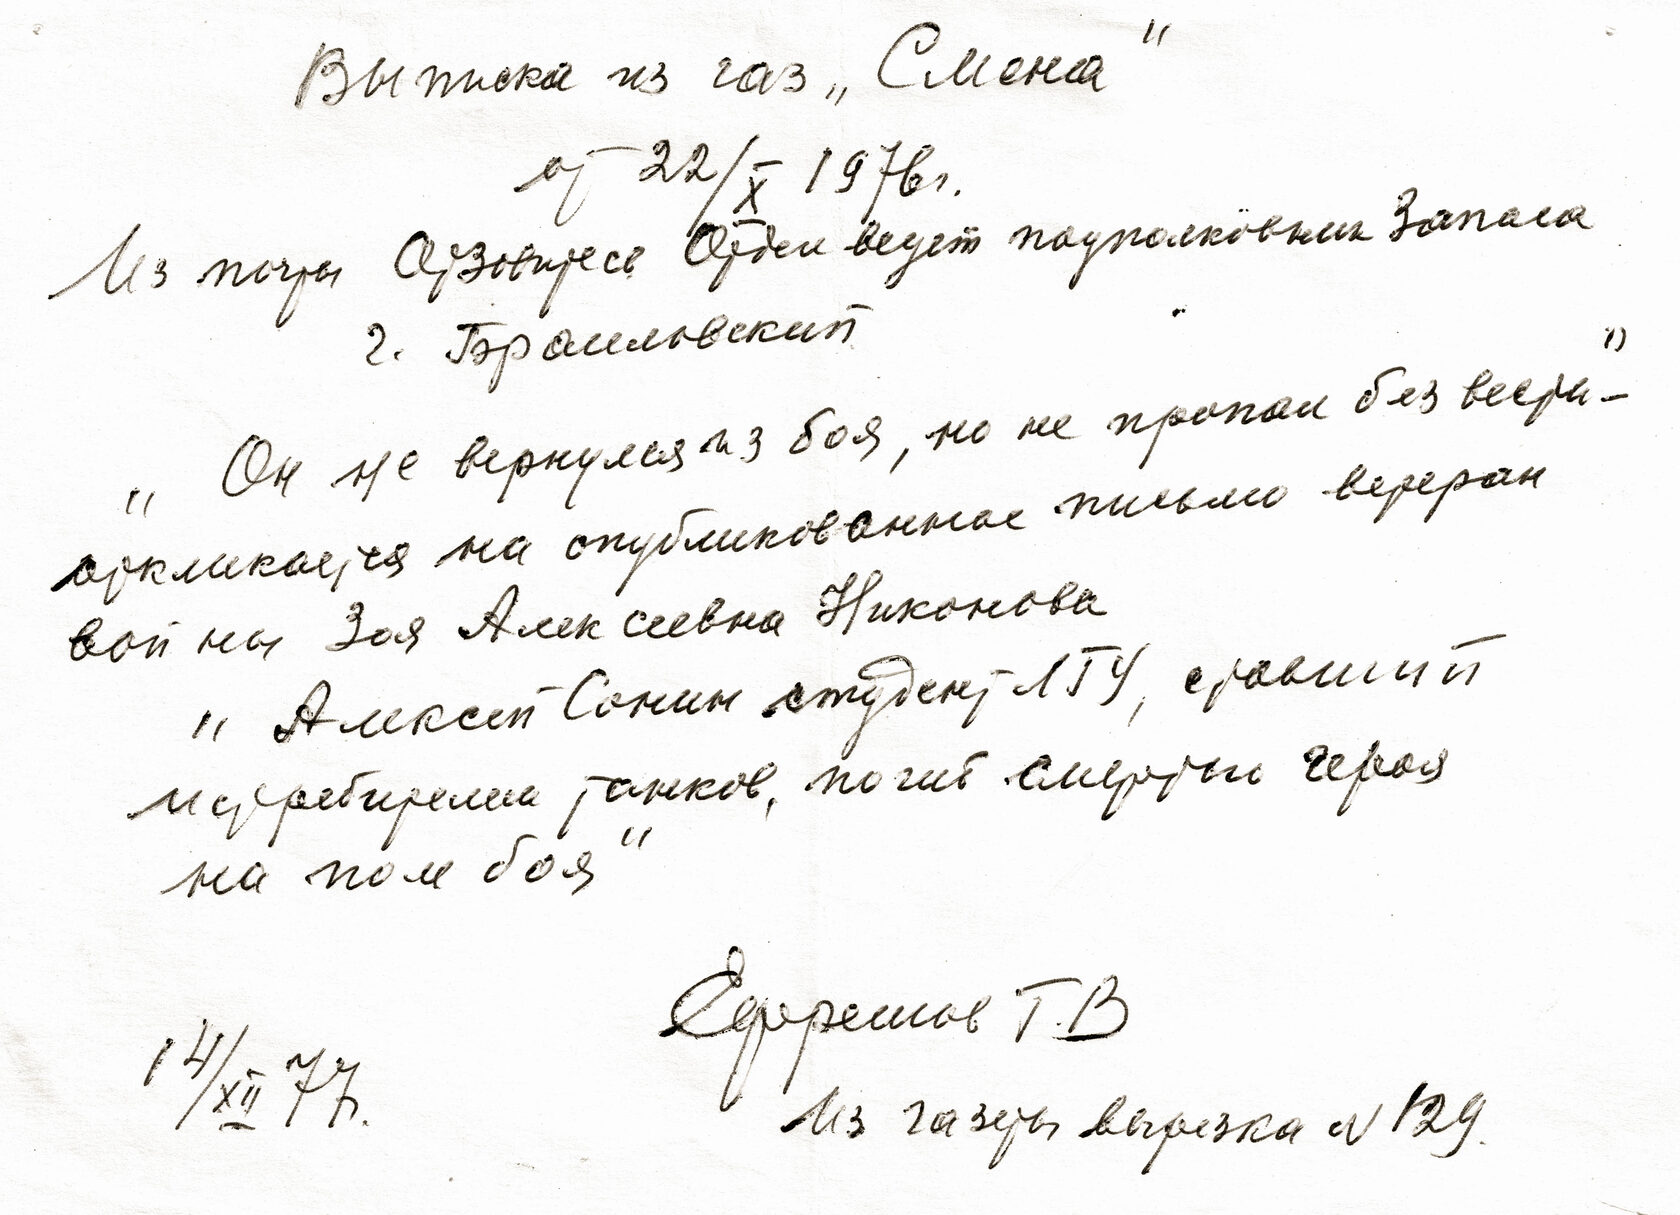 Выписка из газ „Смена"
от 22/X 1976г.
Из почты Отзовитесь Отдел ведет подполковник Запаса
г. Браиловский
„Он не вернулся из боя, но не пропал без вести"–
откликается на опубликованное письмо ветеран
войны Зоя Алексеевна Никонова
„Алексей Сонин студент ЛГУ, ставший
истребителем танков, погиб смертью героя
на поле боя"
Ефремов Г.В
14/XII 77г.
Из газеты вырезка N 129.